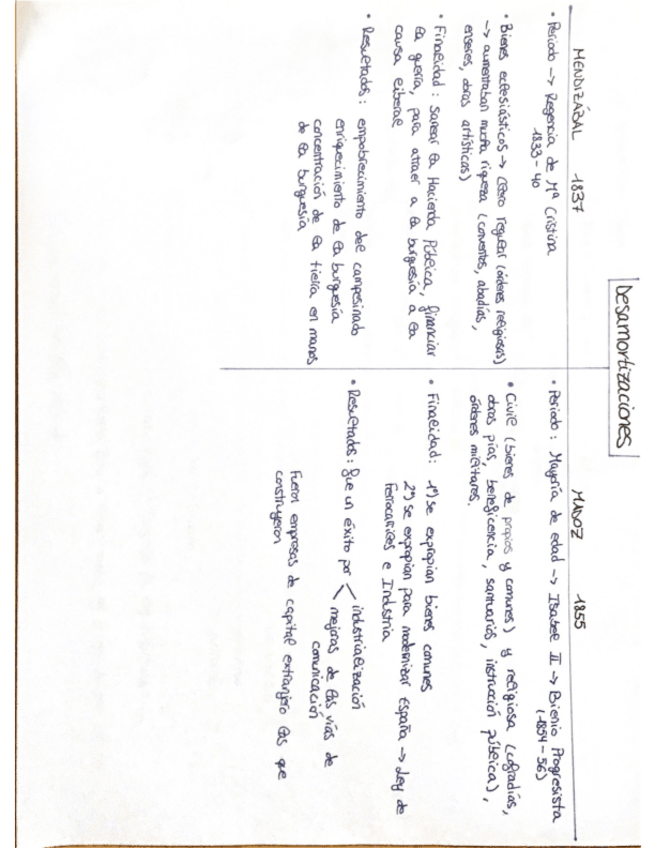 Desamortizaciones
MENDIZÁBAL 1837
• Periodo -> Regencia de Mª Cristina
1833 - 40
• Bienes eclesiásticos -> Clero regular (órdenes religiosas)
-> aumentaban mucha riqueza (conventos, abadías,
enseres, obras artísticas)
• Finalidad: sanear la Hacienda Pública, financiar
la guerra, para atraer a la burguesía a la
causa liberal
• Resultados: empobrecimiento del campesinado
enriquecimiento de la burguesía
concentración de la tierra en manos
de la burguesía
MADOZ 1855
• Periodo: Mayoría de edad -> Isabel II -> Bienio Progresista
(1854 - 56)
• Civil (bienes de propios y comunes) y religiosa (cofradías,
obras pías, beneficencia, santuarios, instrucción pública),
órdenes militares.
• Finalidad: 1º) se expropian bienes comunes
2º) se expropian para modernizar España -> Ley de
Ferrocarriles e Industria
• Resultados: fue un éxito por < industrialización
mejoras de las vías de
comunicación
Fueron empresas de capital extranjero las que
construyeron